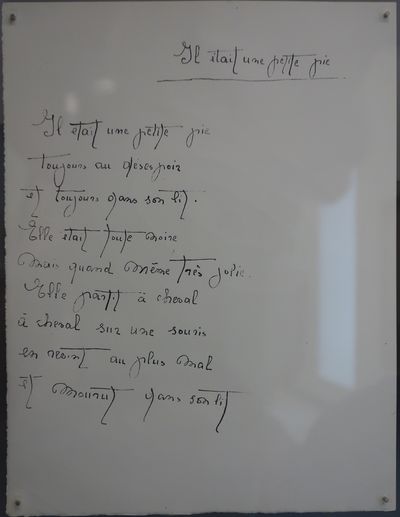 Il était une petite pie
Il était une petite pie
toujours au désespoir
et toujours dans son lit.
Elle était toute noire
mais quand même très jolie.
Elle partit à cheval
à cheval sur une souris
en revint au plus mal
et mourut dans son lit